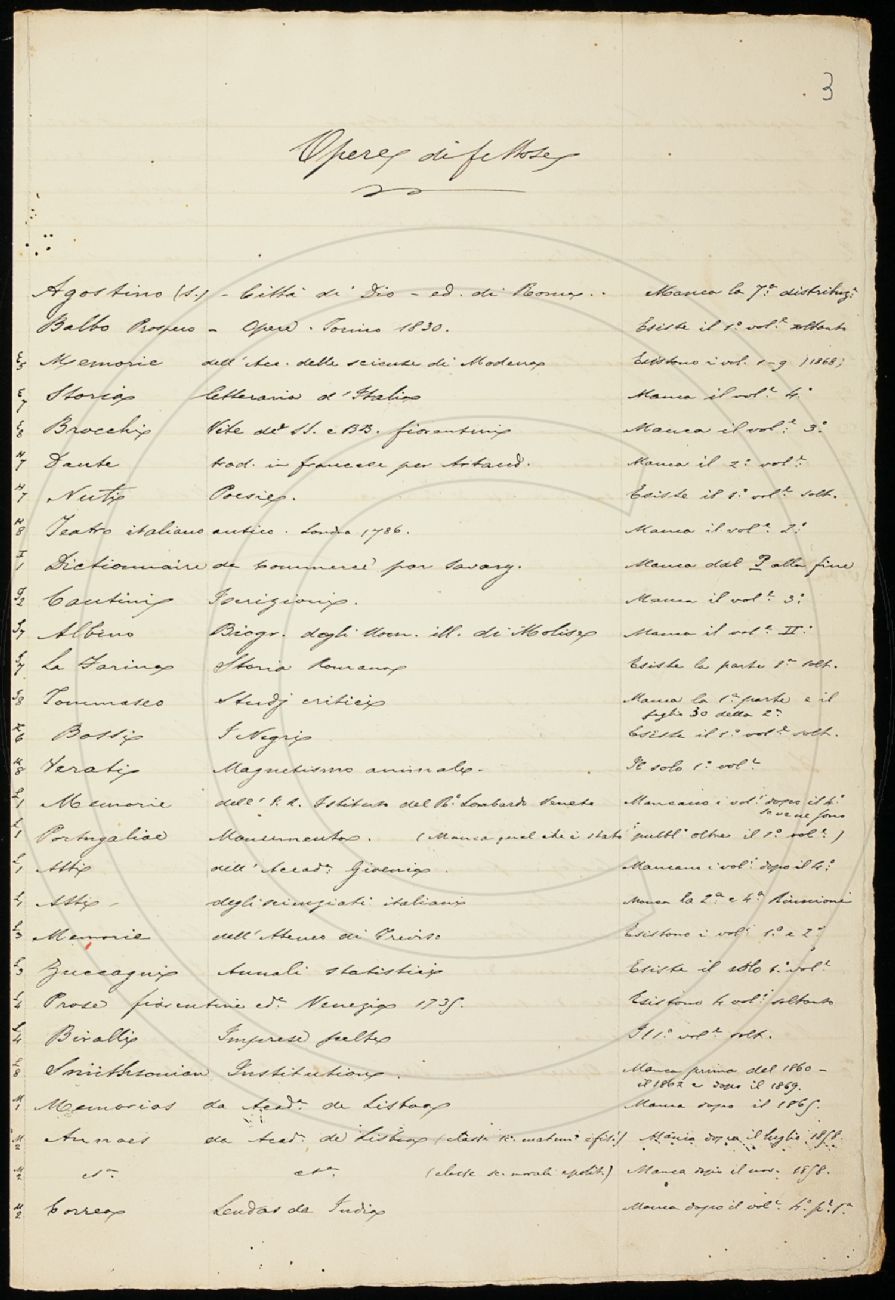 3
Opere difettose
Agostino (S.) - Città di Dio - ed. di Roma.. Manca la 7ª distribuz.
Balbo Prospero - Opere. Torino 1830. Esiste il 1º volº soltanto
Memorie dell'Acc. delle scienze di Modena Esistono i vol. 1-9 (1868)
Storia letteraria d'Italia Manca il volº 4º
Brocchi Vite de' SS. e BB. fiorentini Manca il volº 3º
Dante trad. in francese per Artaud. Manca il 2º volº
Nuti Poesie. Esiste il 1º volº solt.
Teatro italiano antico. Londra 1786. Manca il volº 2º
Dictionnaire de Commerce par Savary. Manca dal P alla fine
Cantini Iscrizioni. Manca il volº 3º
Albino Biogr. degli Uom. ill. di Molise Manca il volº IIº
La Farina Storia Romana Esiste la parte 1ª solt.
Tommaseo Studj critici Manca la 1ª parte e il
foglio 30 della 2ª
Bossi I Negri Esiste il 1º volº solt.
Verati Magnetismo animale. Il solo 1º volº
Memorie dell'I. R. Istituto del Rº Lombardo Veneto Mancano i volⁱ dopo il 4º
se ve ne sono
Portugaliae Monumenta. (Manca quel che è stato pubblº oltre il 1º volº)
Atti dell'Accadª Gioenia. Mancano i volⁱ dopo il 4º
Atti - degli scienziati italiani Manca la 2ª e 4ª Riunione
Memorie dell'Ateneo di Treviso Esistono i volⁱ 1º e 2º
Zuccagni Annali statistici Esiste il solo 1º volº
Prose fiorentine edº Venezia 1735. Esistono 4 volⁱ soltanto
Biralli Imprese scelte Il 1º volº solt.
Smithsonian Institution. Manca prima del 1860 -
il 1862 e dopo il 1869.
Memorias da Acadª de Lisboa Manca dopo il 1865.
Annaes da Acad. de Lisboa Manca dopo il luglio 1858.
etª etª Manca dopo il nov. 1858.
Correa Lendas da India Manca dopo il volº 4º pº 1ª